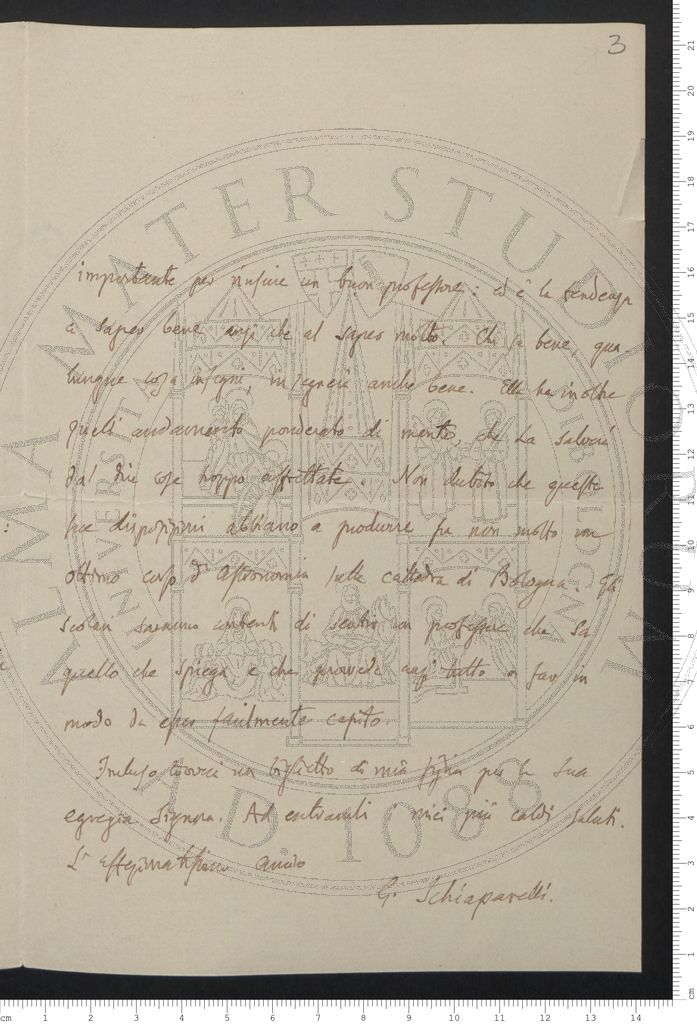 3
importante per riuscire un buon professore: ed è la tendenza
a saper bene anzi che al saper molto. Chi sa bene, qua-
lunque cosa insegni, insegnerà anche bene. Ella ha inoltre
quell' andamento ponderato di mente, che La salverà
dal dir cose troppo affrettate. Non dubito che queste
sue disposizioni abbiano a produrre fra non molto un
ottimo corso d'Astronomia sulla cattedra di Bologna. Gli
scolari saranno contenti di sentir un professore che sa
quello che spiega, e che provvede anzi tutto a farsi in
modo da esser facilmente capito.
Incluso troverà un biglietto di mia figlia per la Sua
egregia Signora. Ad entrambi i miei più caldi saluti.
L' affezionatissimo amico
G. Schiaparelli.
ALMA MATER STUDIORUM
A.D. 1088